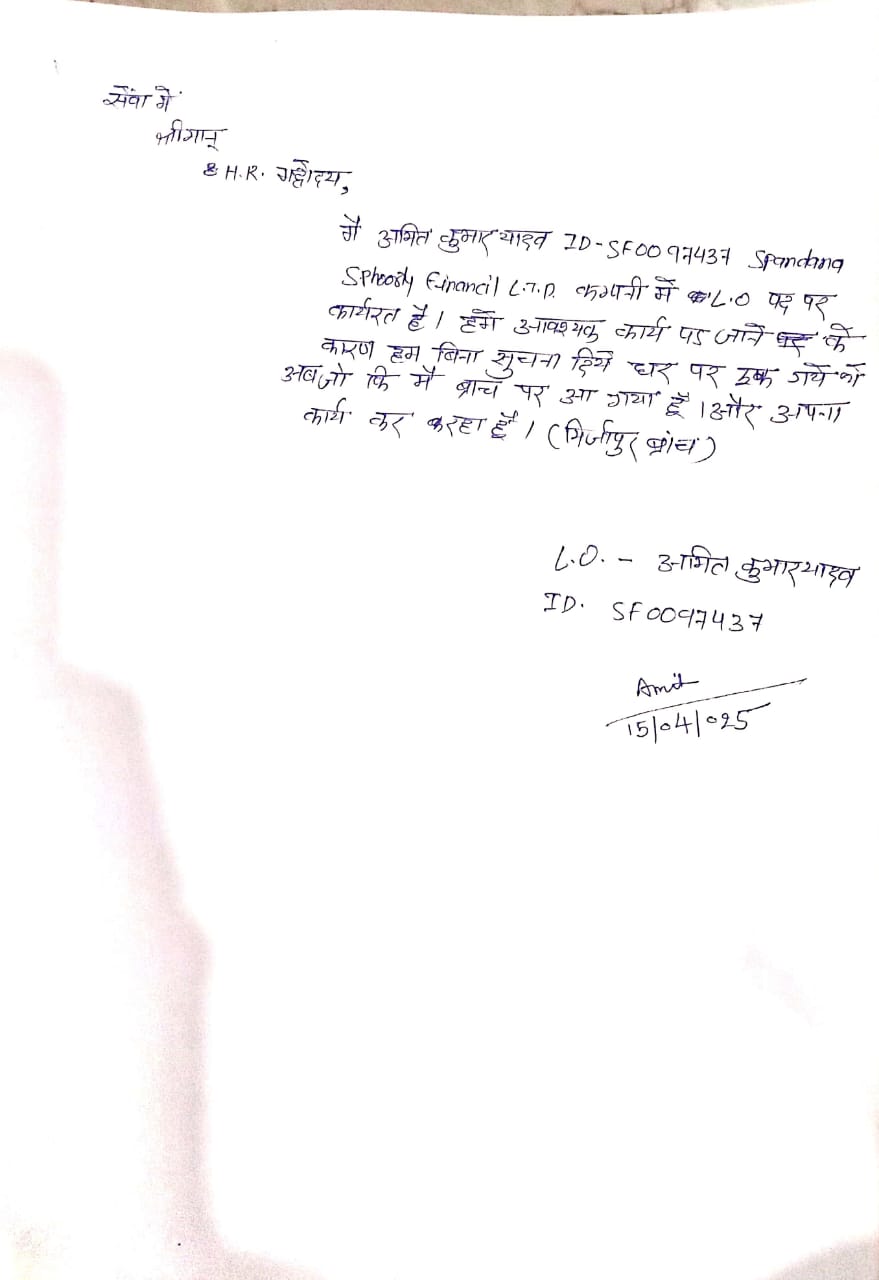 सेंवा में
श्रीमान्
H.R. महोदय,
मै अमित कुमार यादव ID-SF0097437 Spandana
Sphoorty Financil L.T.D. कम्पनी में L.O पद पर
कार्यरत है। हमे आवश्यक कार्य पड जाने के
कारण हम बिना सुचना दिये घर पर रुक गये थे
अब जो कि मै ब्रांच पर आ गया हूँ। और अपना
कार्य कर रहा हूँ। (मिर्जापुर ब्रांच)
L.O. - अमित कुमार यादव
ID. SF0097437
Amit
15/04/025